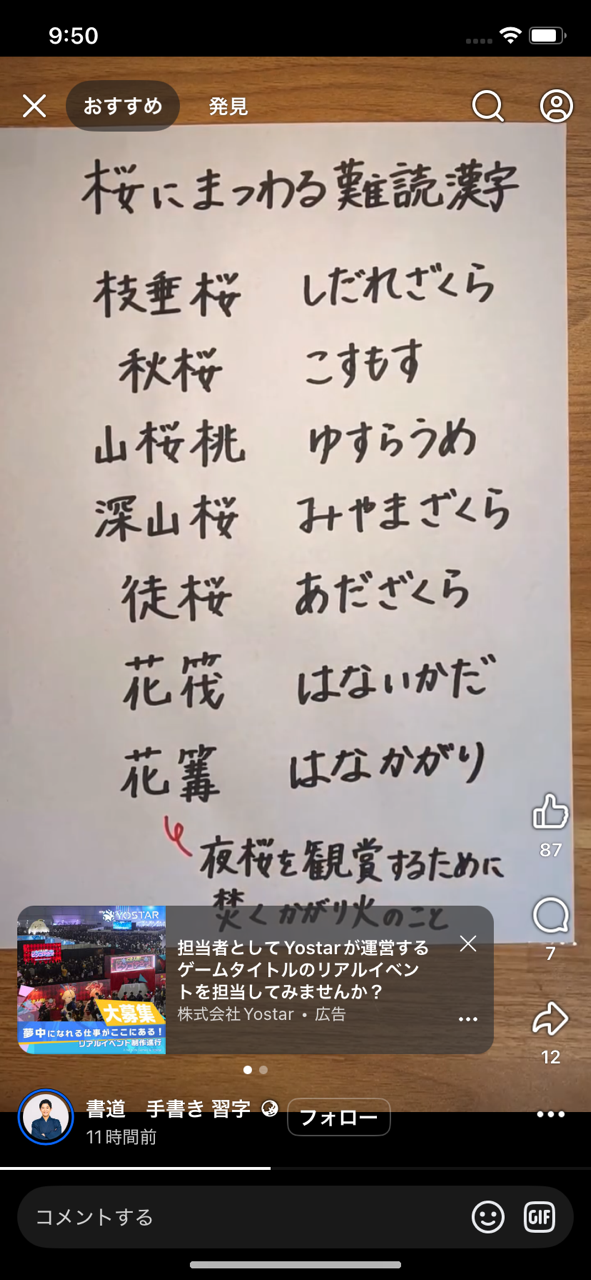 9:50
おすすめ 発見
桜にまつわる難読漢字
枝垂桜 しだれざくら
秋桜 こすもす
山桜桃 ゆすらうめ
深山桜 みやまざくら
徒桜 あだざくら
花筏 はないかだ
花篝 はなかがり
夜桜を観賞するために
焚くかがり火のこと
87
7
12
YOSTAR
大募集
夢中になれる仕事がここにある!
リアルイベント制作進行
担当者としてYostarが運営する
ゲームタイトルのリアルイベン
トを担当してみませんか?
株式会社Yostar・広告
書道 手書き 習字
フォロー
11時間前
コメントする
GIF